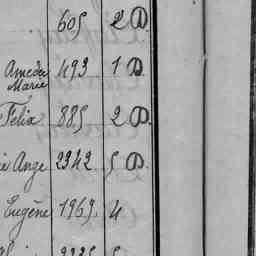 605 2 D
Amedée Marie 493 1 D
Felix 885 2 D
Ange 2342 5 D
Eugène 1969 4